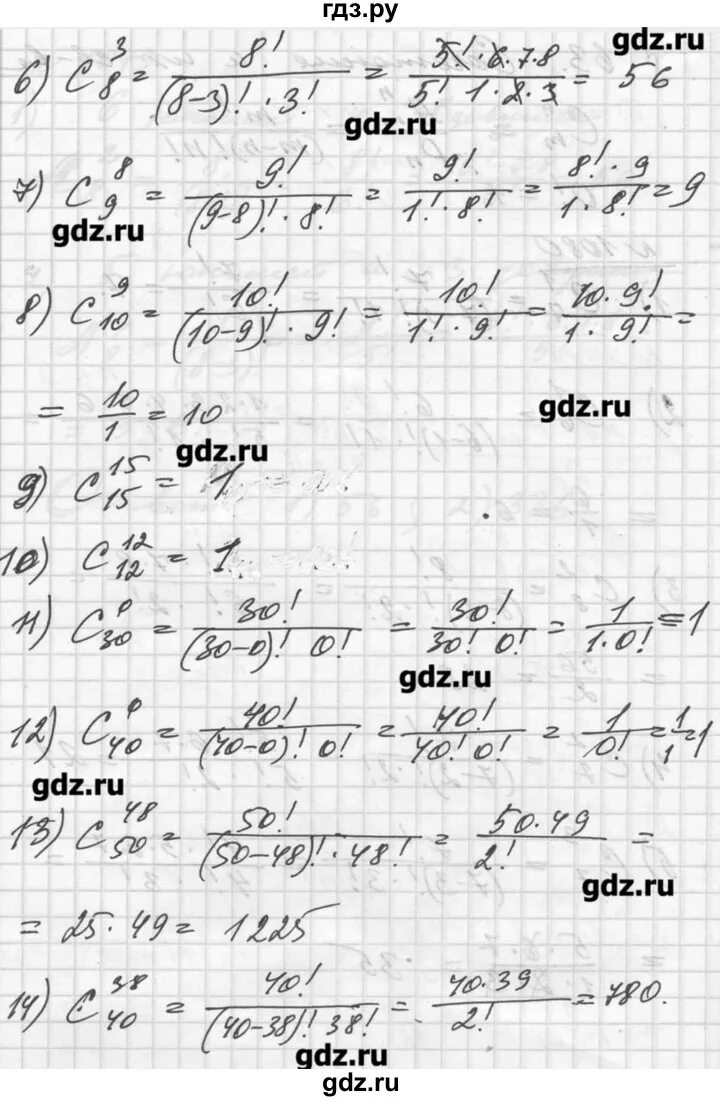 гдз.ру
gdz.ru
6) C₈³ = 8! / ((8-3)! · 3!) = 5! · 6 · 7 · 8 / (5! 1 · 2 · 3) = 56
gdz.ru
7) C₉⁸ = 9! / ((9-8)! · 8!) = 9! / (1! · 8!) = 8! · 9 / (1 · 8!) = 9
gdz.ru
8) C₁₀⁹ = 10! / ((10-9)! · 9!) = 10! / (1! · 9!) = 10 · 9! / (1 · 9!) =
= 10/1 = 10
gdz.ru
gdz.ru
9) C₁₅¹⁵ = 1.
10) C₁₂¹² = 1.
11) C₃₀⁰ = 30! / ((30-0)! 0!) = 30! / (30! 0!) = 1 / (1 · 0!) = 1
gdz.ru
12) C₄₀⁰ = 40! / ((40-0)! 0!) = 40! / (40! 0!) = 1 / 0! = 1/1 = 1
gdz.ru
13) C₅₀⁴⁸ = 50! / ((50-48)! · 48!) = 50 · 49 / 2! =
gdz.ru
= 25 · 49 = 1225
14) C₄₀³⁸ = 40! / ((40-38)! 38!) = 40 · 39 / 2! = 780.
gdz.ru
gdz.ru